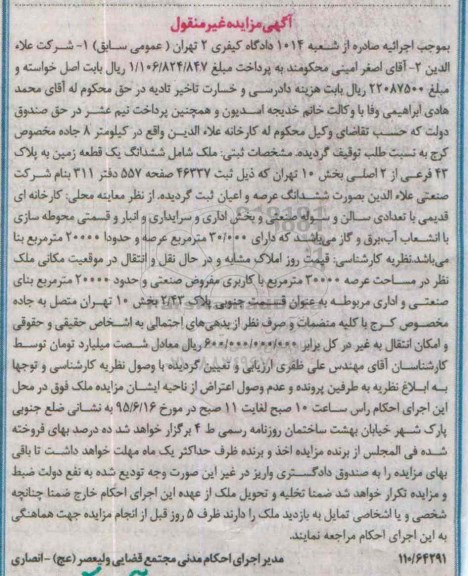 آگهی مزایده غیرمنقول
بموجب اجرائیه صادره از شعبه ۱۰۱۴ دادگاه کیفری ۲ تهران ( عمومی سابق) ۱- شرکت علاء
الدین ۲- آقای اصغر امینی محکومند به پرداخت مبلغ ۱/۱۰۶/۸۲۴/۸۴۷ ریال بابت اصل خواسته و
مبلغ ۲۲۰۸۷۵۰۰ ریال بابت هزینه دادرسی و خسارت تاخیر تادیه در حق محکوم له آقای محمد
هادی ابراهیمی وفا با وکالت خانم خدیجه اسدیون و همچنین پرداخت نیم عشر در حق صندوق
دولت که حسب تقاضای وکیل محکوم له کارخانه علاء الدین واقع در کیلومتر ۸ جاده مخصوص
کرج به نسبت طلب توقیف گردیده. مشخصات ثبتی: ملک شامل ششدانگ یک قطعه زمین به پلاک
۴۳ فرعی از ۲ اصلی بخش ۱۰ تهران که ذیل ثبت ۴۶۳۳۷ صفحه ۵۵۷ دفتر ۳۱۱ بنام شرکت
صنعتی علاء الدین بصورت ششدانگ عرصه و اعیان ثبت گردیده. از نظر معاینه محلی: کارخانه ای
قدیمی با تعدادی سالن و سوله صنعتی و بخش اداری و سرایداری و انبار و قسمتی محوطه سازی
با انشعاب آب،برق و گاز می‌باشد که دارای ۳۰/۰۰۰ مترمربع عرصه و حدودا ۲۰۰۰۰ مترمربع بنا
می‌باشد.نظریه کارشناسی: قیمت روز املاک مشابه و در حال نقل و انتقال در موقعیت مکانی ملک
نظر در مساحت عرصه ۳۰۰۰۰ مترمربع با کاربری مفروض صنعتی و حدود ۲۰۰۰۰ مترمربع بنای
صنعتی و اداری مربوطه به عنوان قسمت جنوبی پلاک ۲/۴۳ بخش ۱۰ تهران متصل به جاده
مخصوص کرج با کلیه منضمات و صرف نظر از بدهی‌های احتمالی به اشخاص حقیقی و حقوقی
و امکان انتقال به غیر در کل برابر ۶۰۰/۰۰۰/۰۰۰/۰۰۰ ریال معادل شصت میلیارد تومان توسط
کارشناسان آقای مهندس علی ظفری ارزیابی و تعیین گردیده با وصول نظریه کارشناسی و توجها
به ابلاغ نظریه به طرفین پرونده و عدم وصول اعتراض از ناحیه ایشان مزایده ملک فوق در محل
این اجرای احکام راس ساعت ۱۰ صبح لغایت ۱۱ صبح در مورخ ۹۵/۶/۱۶ به نشانی ضلع جنوبی
پارک شهر خیابان بهشت ساختمان روزنامه رسمی ط ۴ برگزار خواهد شد ده درصد بهای فروخته
شده فی المجلس از برنده مزایده اخذ و برنده ظرف حداکثر یک ماه مهلت خواهد داشت تا باقی
بهای مزایده را به صندوق دادگستری واریز در غیر این صورت وجه تودیع شده به نفع دولت ضبط
و مزایده تکرار خواهد شد ضمنا تخلیه و تحویل ملک از عهده این اجرای احکام خارج ضمنا چنانچه
شخصی و یا اشخاصی تمایل به بازدید ملک را دارند ظرف ۵ روز قبل از انجام مزایده جهت هماهنگی
به این اجرای احکام مراجعه نمایند.
۱۱۰/۶۴۲۹۱ مدیر اجرای احکام مدنی مجتمع قضایی ولیعصر (عج) -انصاری